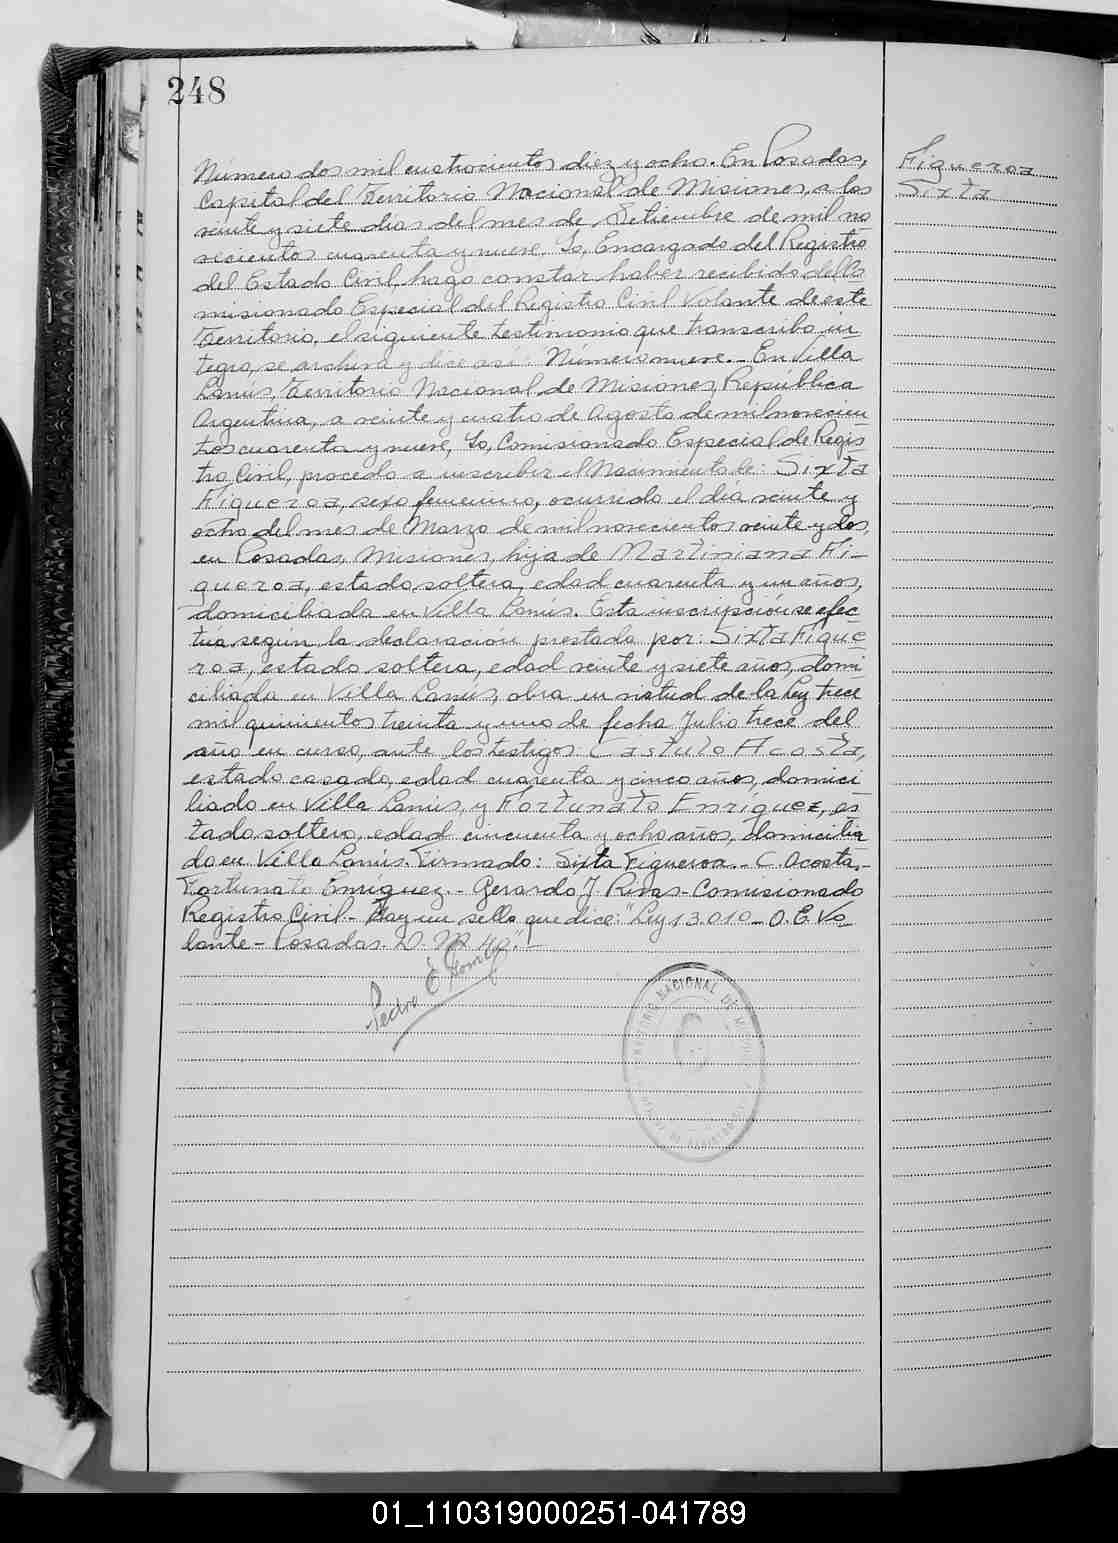 248
Número dos mil cuatrocientos diez y ocho. En Posadas,
Capital del Territorio Nacional de Misiones, a los
veinte y siete dias del mes de Setiembre de mil no
vecientos cuarenta y nueve, Yo, Encargado del Registro
del Estado Civil, hago constar haber recibido del Co
misionado Especial del Registro Civil Volante de este
Territorio, el siguiente testimonio que transcribo ín
tegro, se archiva y dice así: Número nueve.- En Villa
Lanús, Territorio Nacional de Misiones, República
Argentina, a veinte y cuatro de Agosto de mil novecien
tos cuarenta y nueve, Yo, Comisionado Especial de Regis
tro Civil, procedo a inscribir el Nacimiento de: Sixta
Figueroa, sexo femenino, ocurrido el día veinte y
ocho del mes de Marzo de mil novecientos veinte y dos,
en Posadas, Misiones, hija de Martiniana Fi-
gueroa, estado soltera, edad cuarenta y un años,
domiciliada en Villa Lanús. Esta inscripción se efec
túa según la declaración prestada por: Sixta Figue
roa, estado soltera, edad veinte y siete años, domi
ciliada en Villa Lanús, obra en virtud de la Ley trece
mil quinientos treinta y uno de fecha Julio trece del
año en curso, ante los testigos: Castulo Acosta,
estado casado, edad cuarenta y cinco años, domici
liado en Villa Lanús, y Fortunato Enríquez, es
tado soltero, edad cincuenta y ocho años, domicilia
do en Villa Lanús. Firmado: Sixta Figueroa.- C. Acosta.-
Fortunato Enríquez.- Gerardo J. Rivas- Comisionado
Registro Civil.- Hay un sello que dice: "Ley 13.010- O.E. Vo
lante - Posadas.
Pedro E. Gomez
NACIONAL DE
Figueroa
Sixta
01_110319000251-041789